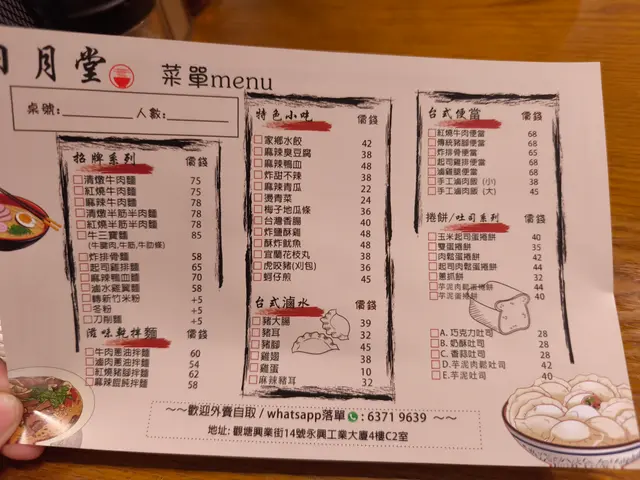 月堂
菜單menu
桌號:________ 人數:________
招牌系列 價錢
清燉牛肉麵 75
紅燒牛肉麵 75
麻辣牛肉麵 78
清燉半筋半肉麵 78
紅燒半筋半肉麵 78
牛三寶麵 85
(牛腱肉,牛筋,牛肋條)
炸排骨麵 58
起司雞排麵 65
麻辣鴨血麵 70
滷水雞翼麵 58
轉新竹米粉 +5
冬粉 +5
刀削麵 +5
滋味乾拌麵 價錢
牛肉蔥油拌麵 60
滷肉蔥油拌麵 54
紅燒豬腳拌麵 62
麻辣餛飩拌麵 58
特色小吃 價錢
家鄉水餃 42
麻辣臭豆腐 38
麻辣鴨血 48
炸甜不辣 38
麻辣青瓜 22
燙青菜 24
梅子地瓜條 36
台灣香腸 40
炸鹽酥雞 48
酥炸魷魚 48
宜蘭花枝丸 38
虎咬豬(刈包) 36
蚵仔煎 45
台式滷水 價錢
豬大腸 39
豬耳 32
豬腳 45
雞翅 38
雞蛋 10
麻辣豬耳 32
台式便當 價錢
紅燒牛肉便當 68
傳統豬腳便當 68
炸排骨便當 65
起司雞排便當 68
滷雞腿便當 68
手工滷肉飯 (小) 38
手工滷肉飯 (大) 45
捲餅/吐司系列 價錢
玉米起司蛋捲餅 40
雙蛋捲餅 35
肉鬆蛋捲餅 42
起司肉鬆蛋捲餅 44
蔥抓餅 32
芋泥肉鬆蛋捲餅 44
芋泥蛋捲餅 40
A. 巧克力吐司 28
B. 奶酥吐司 28
C. 香蒜吐司 28
D. 芋泥肉鬆吐司 42
E. 芋泥吐司 40
～～歡迎外賣自取 / whatsapp落單 : 6371 9639 ～～
地址: 觀塘興業街14號永興工業大廈4樓C2室